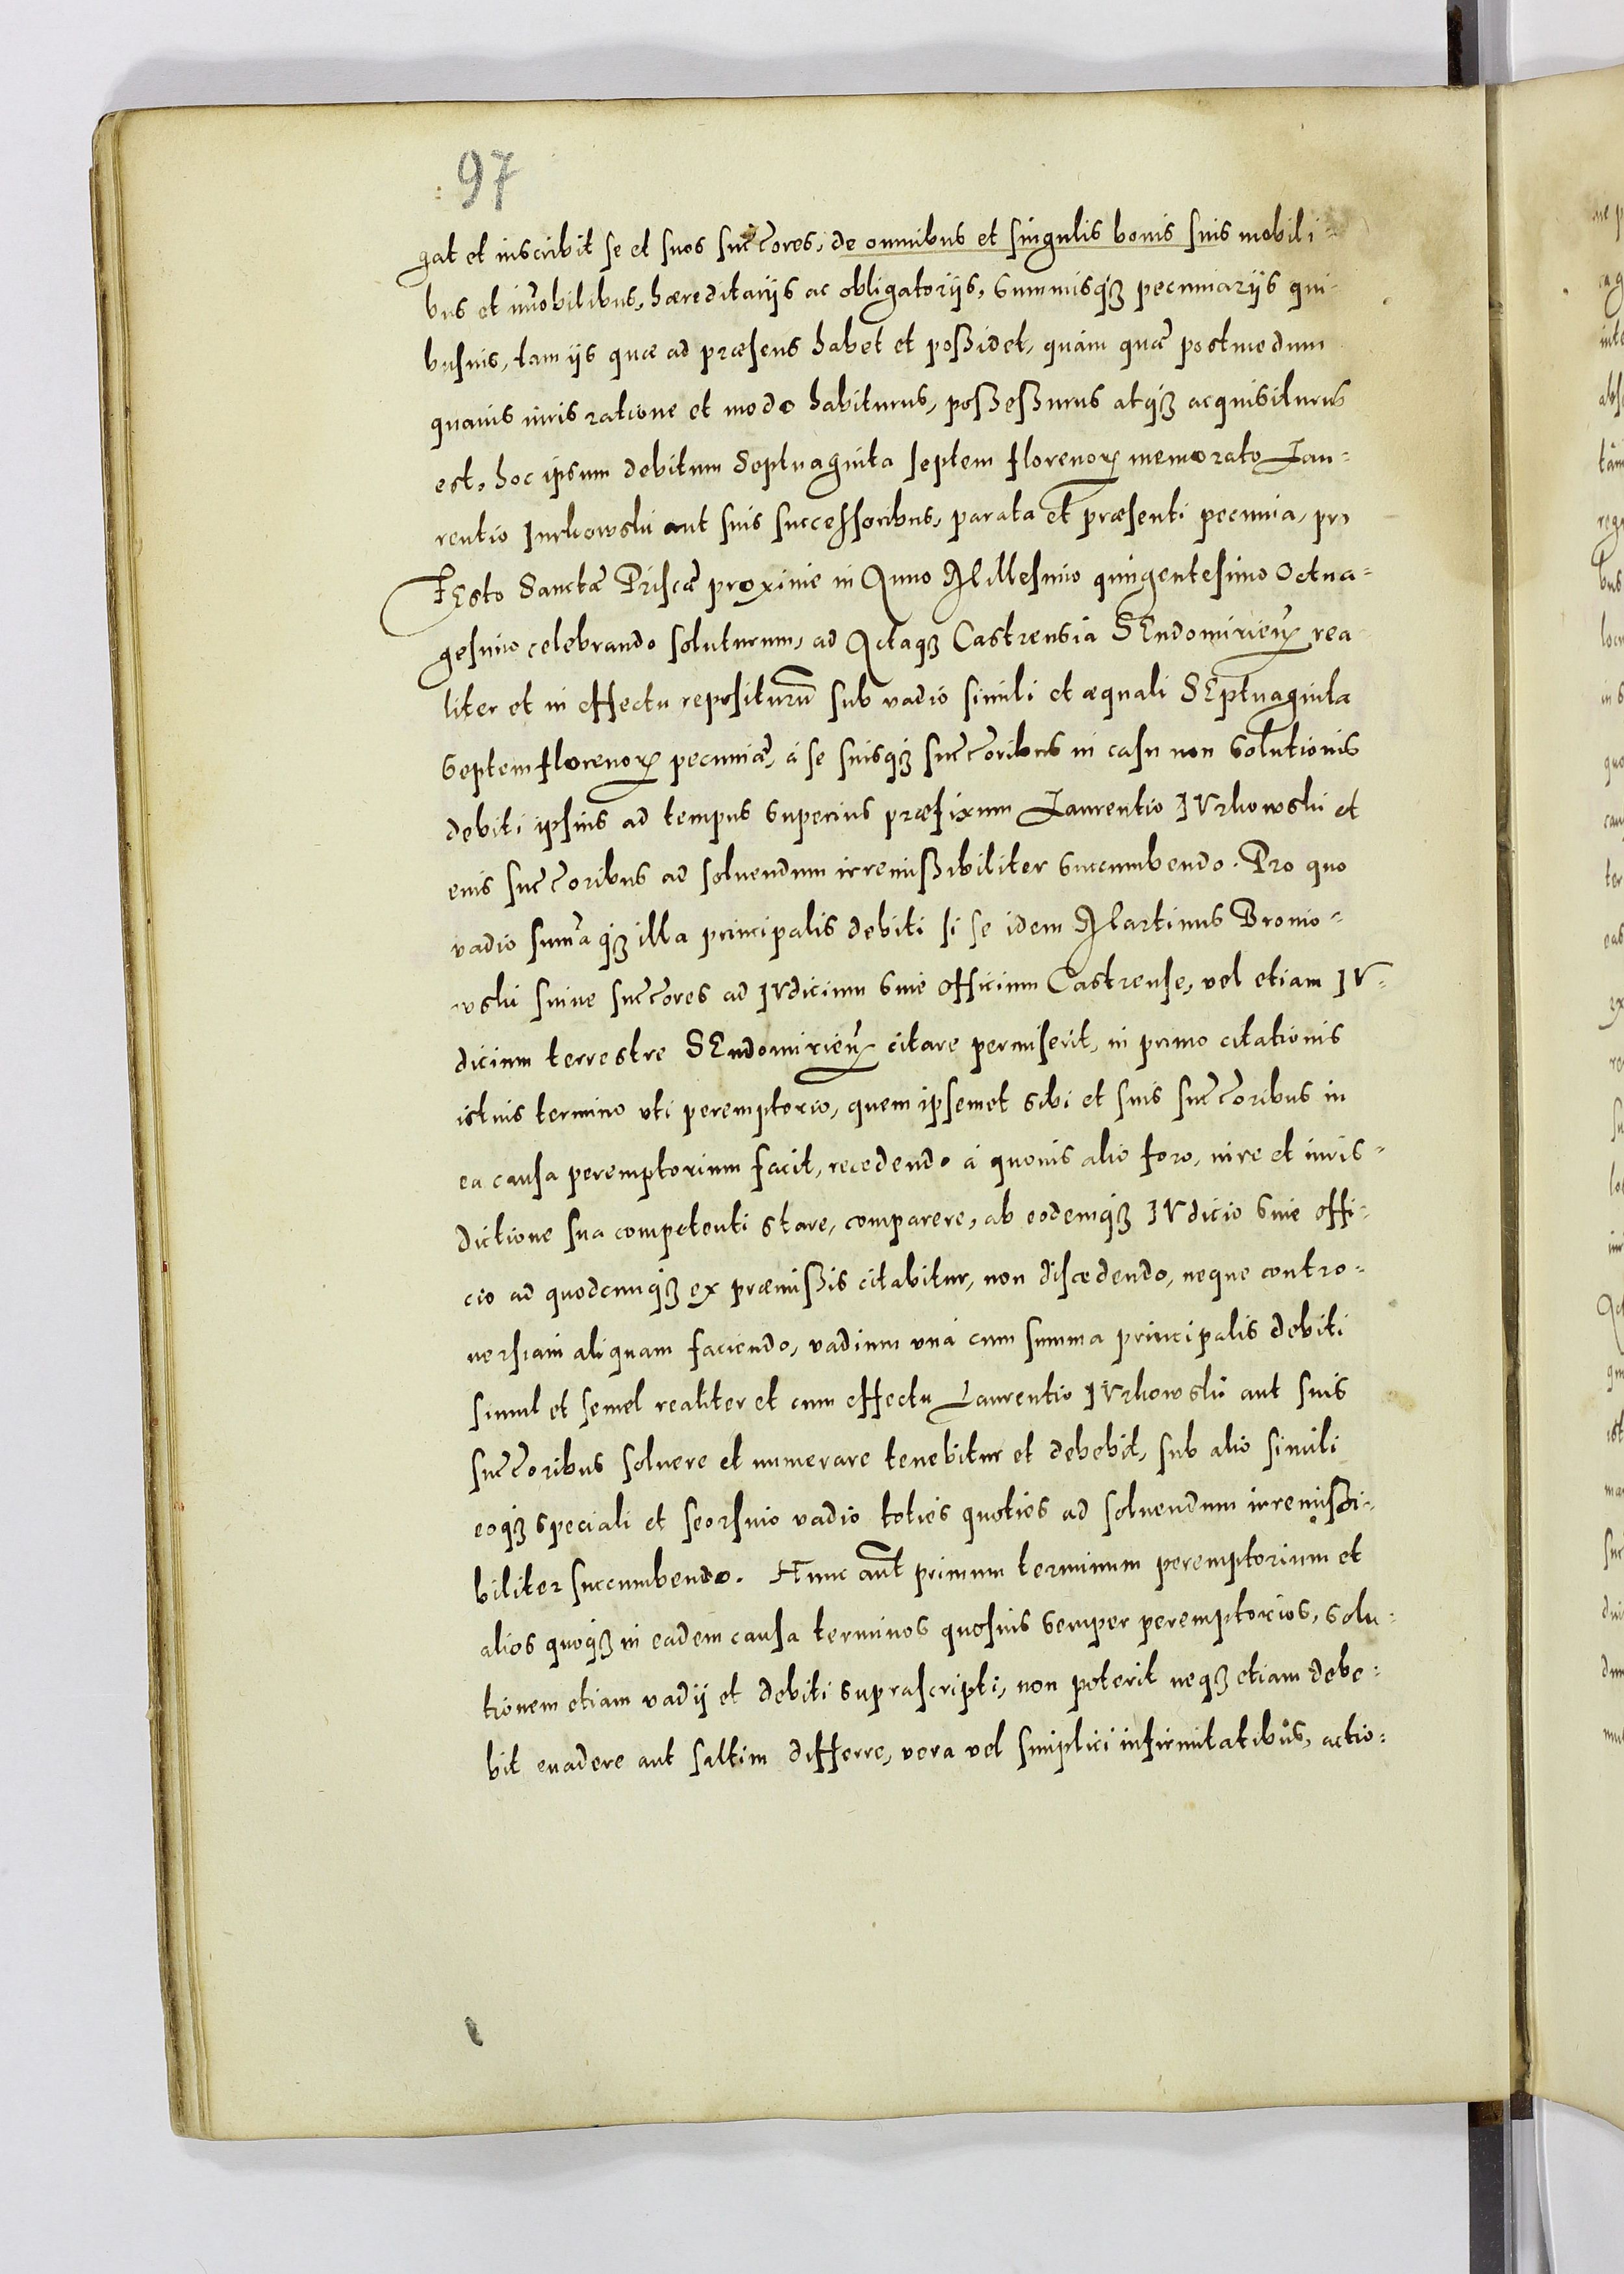 97
gat et inscribit se et suos succ̃ores, de omnibus et singulis bonis suis mobili-
bus et im̃obilibus, hæreditarijs ac obligatorijs, summisq́ꝫ pecuniarijs qui-
busuis, tam ijs quæ ad præsens habet et poßidet, quàm quæ postmodum
quauis iuris ratione et modo habiturus, poßeßurus atq́ꝫ acquisiturus
est, hoc ipsum debitum Septuaginta septem florenoꝝ memorato Lau-
rentio Jurkowski aut suis successoribus, parata et præsenti pecunia, pro
FEsto Sanctæ Priscæ proxime in Anno Millesimo quingentesimo Octua-
gesimo celebrando soluturum, ad Actaqꝫ Castrensia SEndomirieñ rea-
liter et in effectu repositurũ sub vadio simili et æquali SEptuaginta
Septem florenoꝝ pecuniæ, à se suisq́ꝫ succ̃oribus in casu non solutionis
debiti ipsius ad tempus superius præfixum Laurentio IVrkowski et
eius succ̃oribus ad soluendum irremißibiliter succumbendo. Pro quo
vadio sum̃a q́ꝫ illa principalis debiti si se idem Martinus Bronio-
wski suiue succ̃ores ad IVdicium siue officium Castrense, vel etiam IV-
dicium terrestre SEndomirieñ citare permiserit, in primo citationis
istius termino vti peremptorio, quem ipsemet sibi et suis succ̃oribus in
ea causa peremptorium facit, recedendo à quouis alio foro, iure et iuris-
dictione sua competenti stare, comparere, ab eodemq́ꝫ IVdicio siue offi-
cio ad quodcunq́ꝫ ex præmißis citabitur, non discedendo, neque contro-
uersiam aliquam faciendo, vadium vnà cum summa principalis debiti
simul et semel realiter et cum effectu Laurentio IVrkowski aut suis
succ̃oribus soluere et numerare tenebitur et debebit, sub alio simili
eoq́ꝫ speciali et seorsiuo vadio toties quoties ad soluendum irremißi-
biliter succumbendo. Hunc aũt primum terminum peremptorium et
alios quoq́ꝫ in eadem causa terminos quosuis semper peremptorios, solu-
tionem etiam vadij et debiti suprascripti, non poterit neqꝫ etiam debe-
bit euadere aut saltim differre, vera vel simplici infirmitatibus, actio-